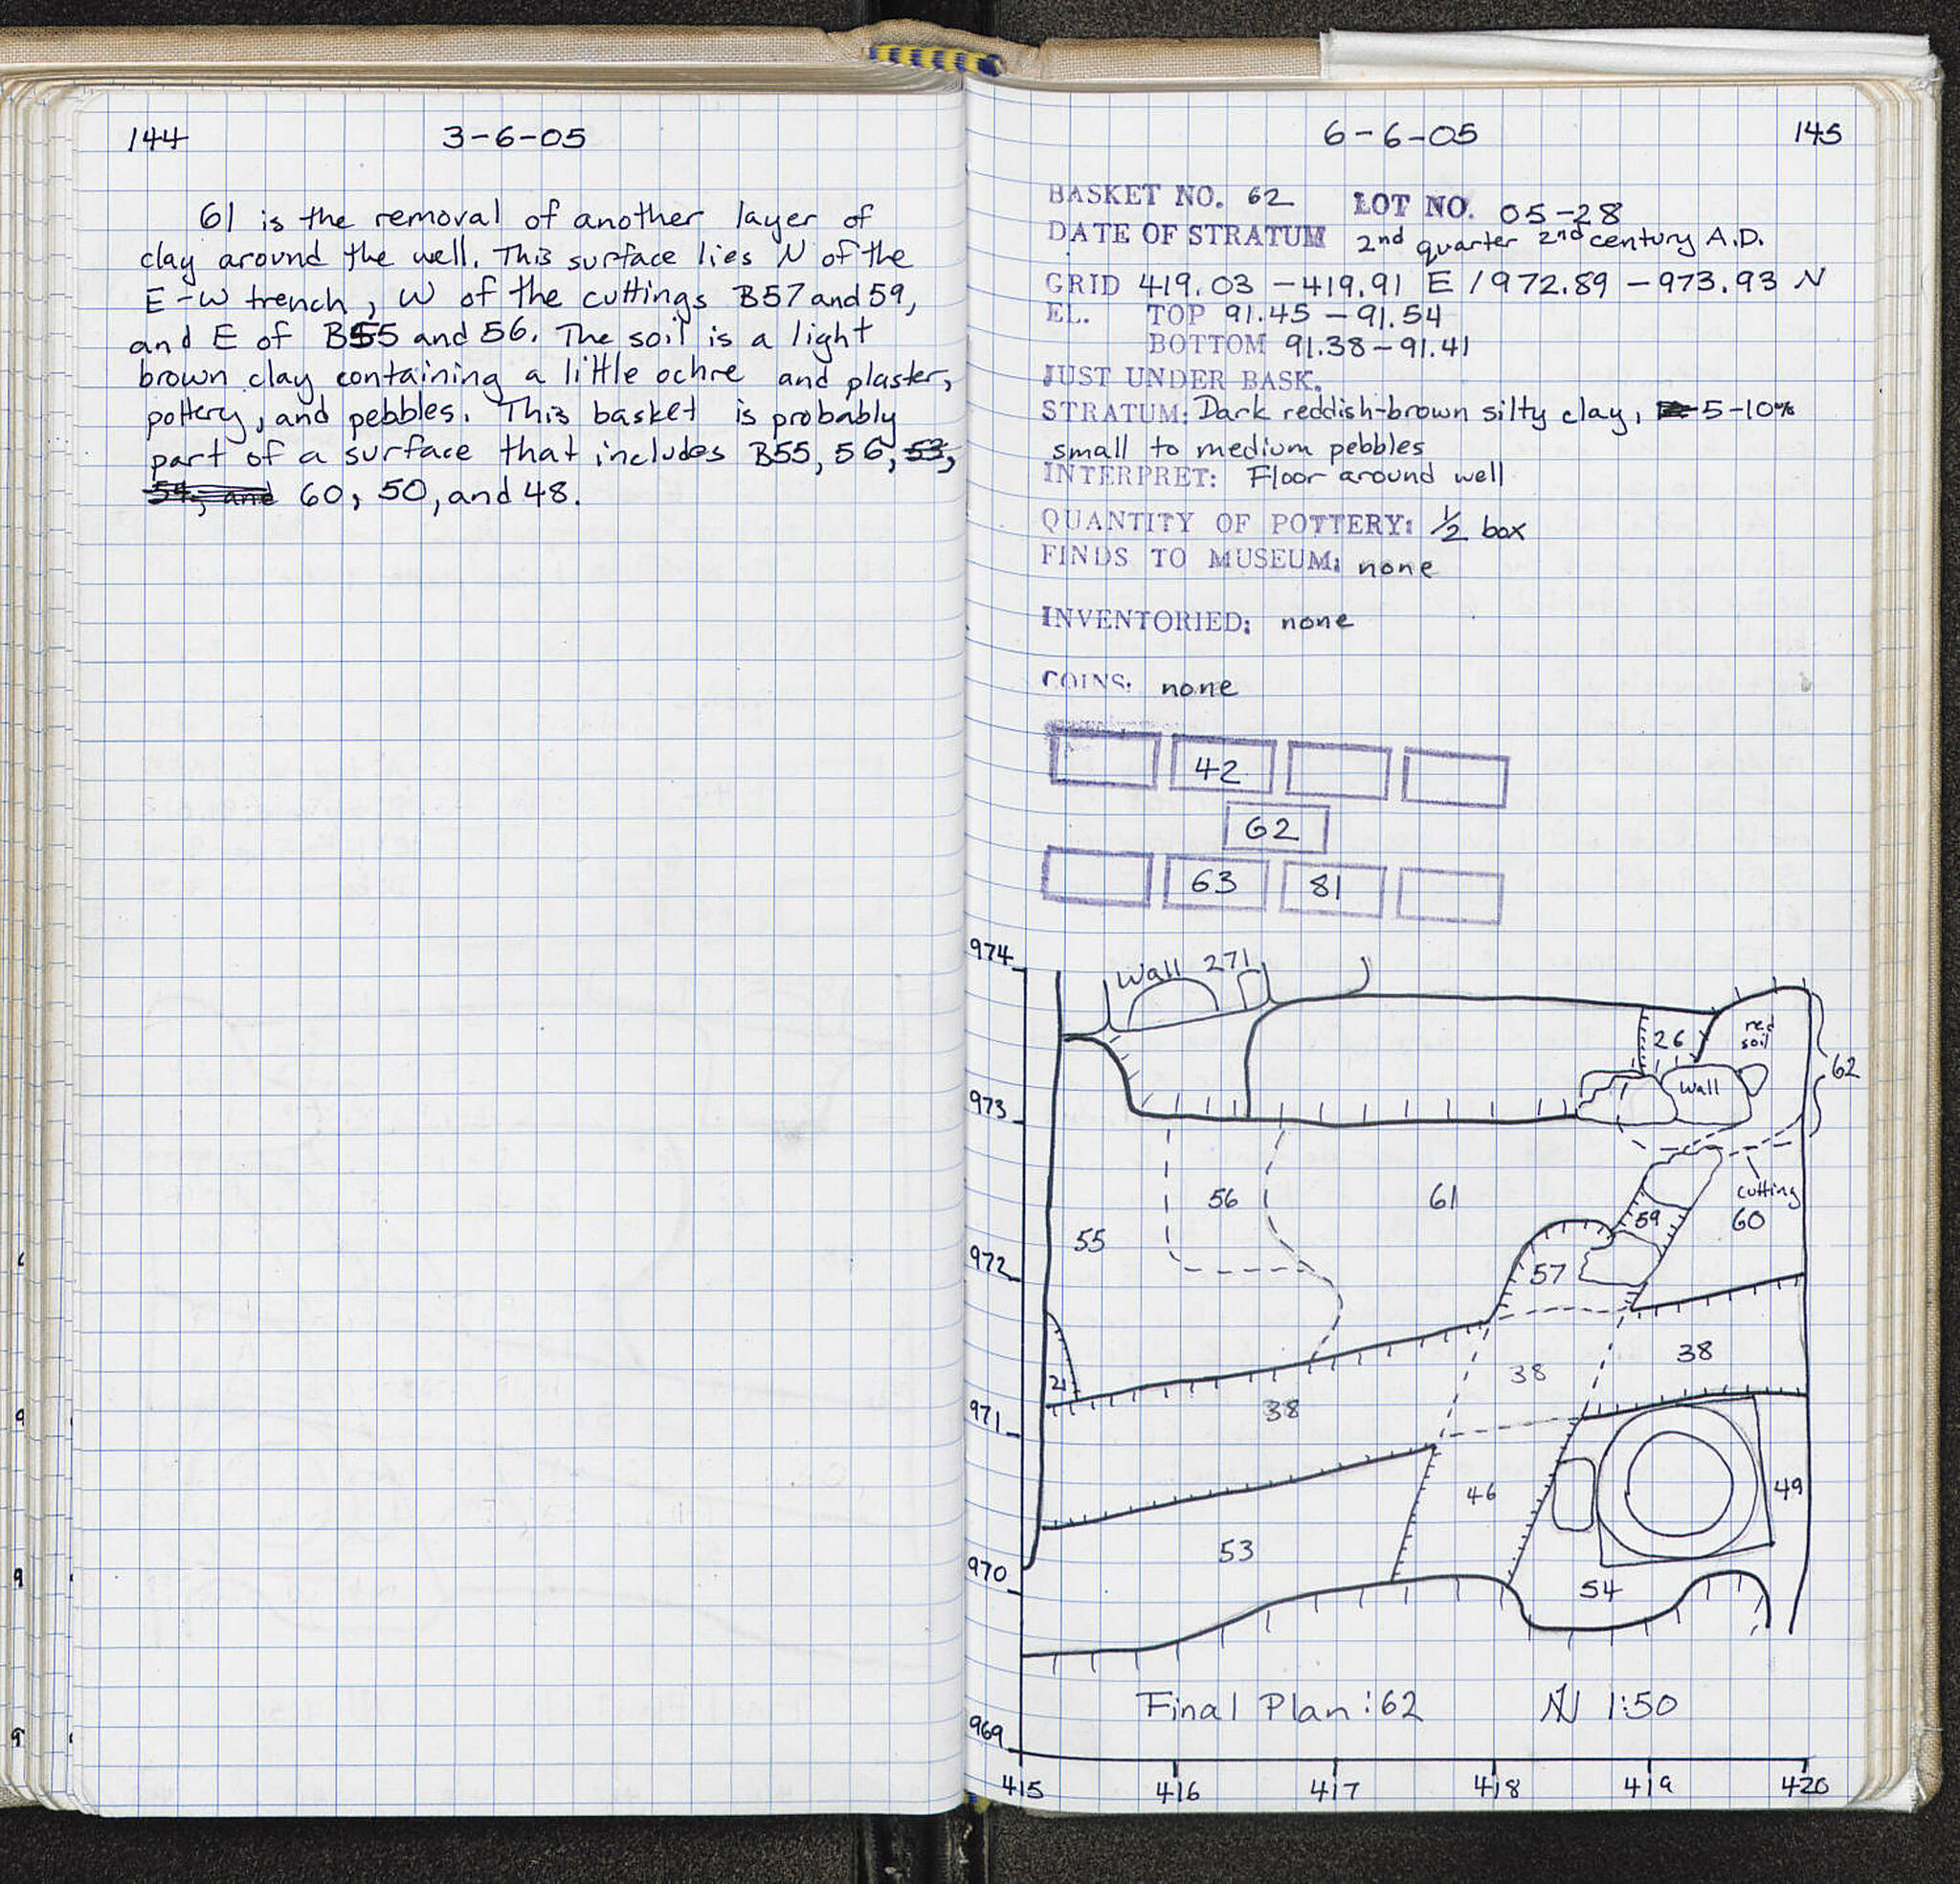 144
3-6-05
61 is the removal of another layer of
clay around the well. This surface lies N of the
E-W trench, W of the cuttings B57 and 59,
and E of B55 and 56. The soil is a light
brown clay containing a little ochre and plaster,
pottery, and pebbles. This basket is probably
part of a surface that includes B55, 56, 53,
54, and 60, 50, and 48.
6-6-05
145
BASKET NO. 62 LOT NO. 05-28
DATE OF STRATUM 2nd quarter 2nd century A.D.
GRID 419.03 - 419.91 E / 972.89 - 973.93 N
EL. TOP 91.45 - 91.54
BOTTOM 91.38 - 91.41
JUST UNDER BASK.
STRATUM: Dark reddish-brown silty clay, 5-10%
small to medium pebbles
INTERPRET: Floor around well
QUANTITY OF POTTERY: 1/2 box
FINDS TO MUSEUM: none
INVENTORIED: none
COINS: none
42
62
63 81
974
Wall 271
26
red
soil
62
wall
973
56
61
cutting
60
59
55
972
57
38
38
21
38
971
46
49
53
970
54
Final Plan: 62 N 1:50
969
415 416 417 418 419 420